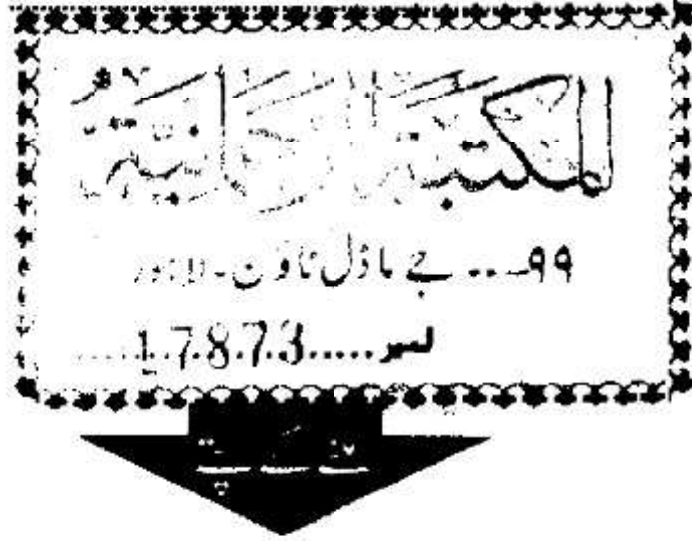 المكتبة الرحمانية
۹۹ ... جے ماڈل ٹاؤن - لاہور
نمبر.....17873.....